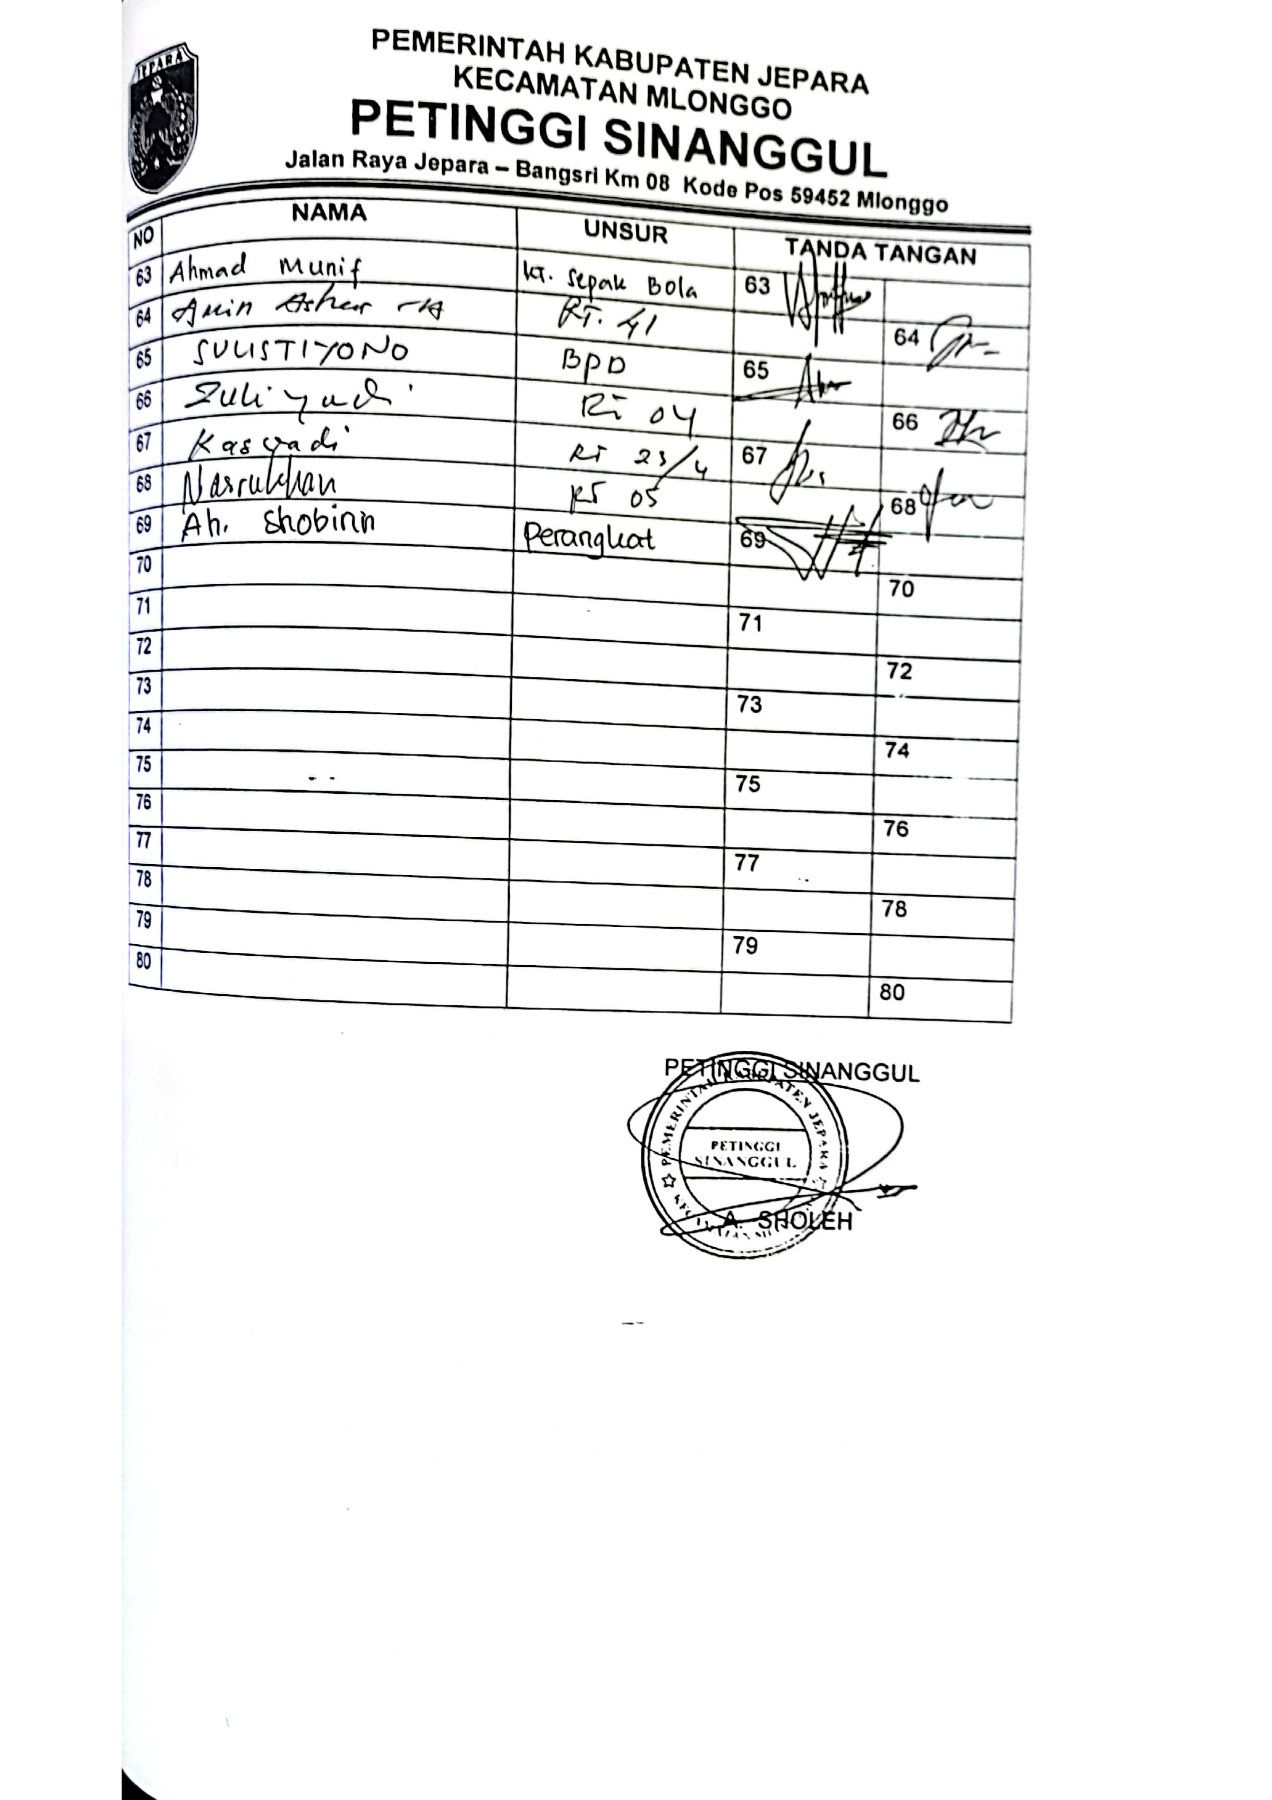 JEPARA
PEMERINTAH KABUPATEN JEPARA
KECAMATAN MLONGGO
PETINGGI SINANGGUL
Jalan Raya Jepara – Bangsri Km 08 Kode Pos 59452 Mlonggo
NO NAMA UNSUR TANDA TANGAN
63 Ahmad Munif Kt. Sepak Bola 63
64 Amin RT. 41 64
65 SULISTIYONO BPD 65
66 Zuliyadi RT 04 66
67 Kasyadi RT 23/4 67
68 Nasrukhan RT 05 68
69 Ah. Shobirin Perangkat 69
70 70
71 71
72 72
73 73
74 74
75 75
76 76
77 77
78 78
79 79
80 80
PETINGGI SINANGGUL
PEMERINTAH KABUPATEN JEPARA
PETINGGI
SINANGGUL
A. SHOLEH